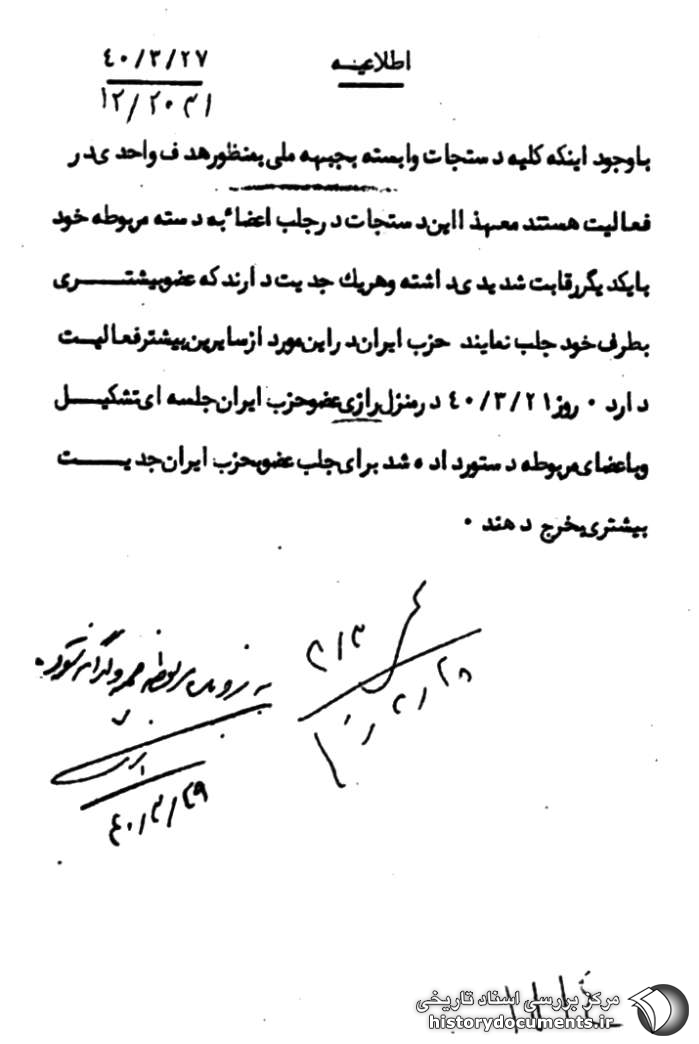 اطلاعیـه
۴۰/۳/۲۷
۱۲/۲۰۳۱
باوجود اینکه کلیه دستجات وابسته بجبهه ملی بمنظور هدف واحدی در
فعالیت هستند معهذا این دستجات در جلب اعضا به دسته مربوطه خود
بایکدیگر رقابت شدیدی داشته و هریك جدیت دارند که عضو بیشتـــری
بطرف خود جلب نمایند حزب ایران در این مورد از سایرین بیشتر فعالیت
دارد ۰ روز ۴۰/۳/۲۱ در منزل رازی عضو حزب ایران جلسه ای تشکیـــل
و باعضای مربوطه دستور داده شد برای جلب عضو بحزب ایران جدیـــت
بیشتری بخرج دهند ۰
۳۱۳
به پرونده مربوطه ضمیمه و
۴۰/۳/۲۹
مرکز بررسی اسناد تاریخی
historydocuments.ir